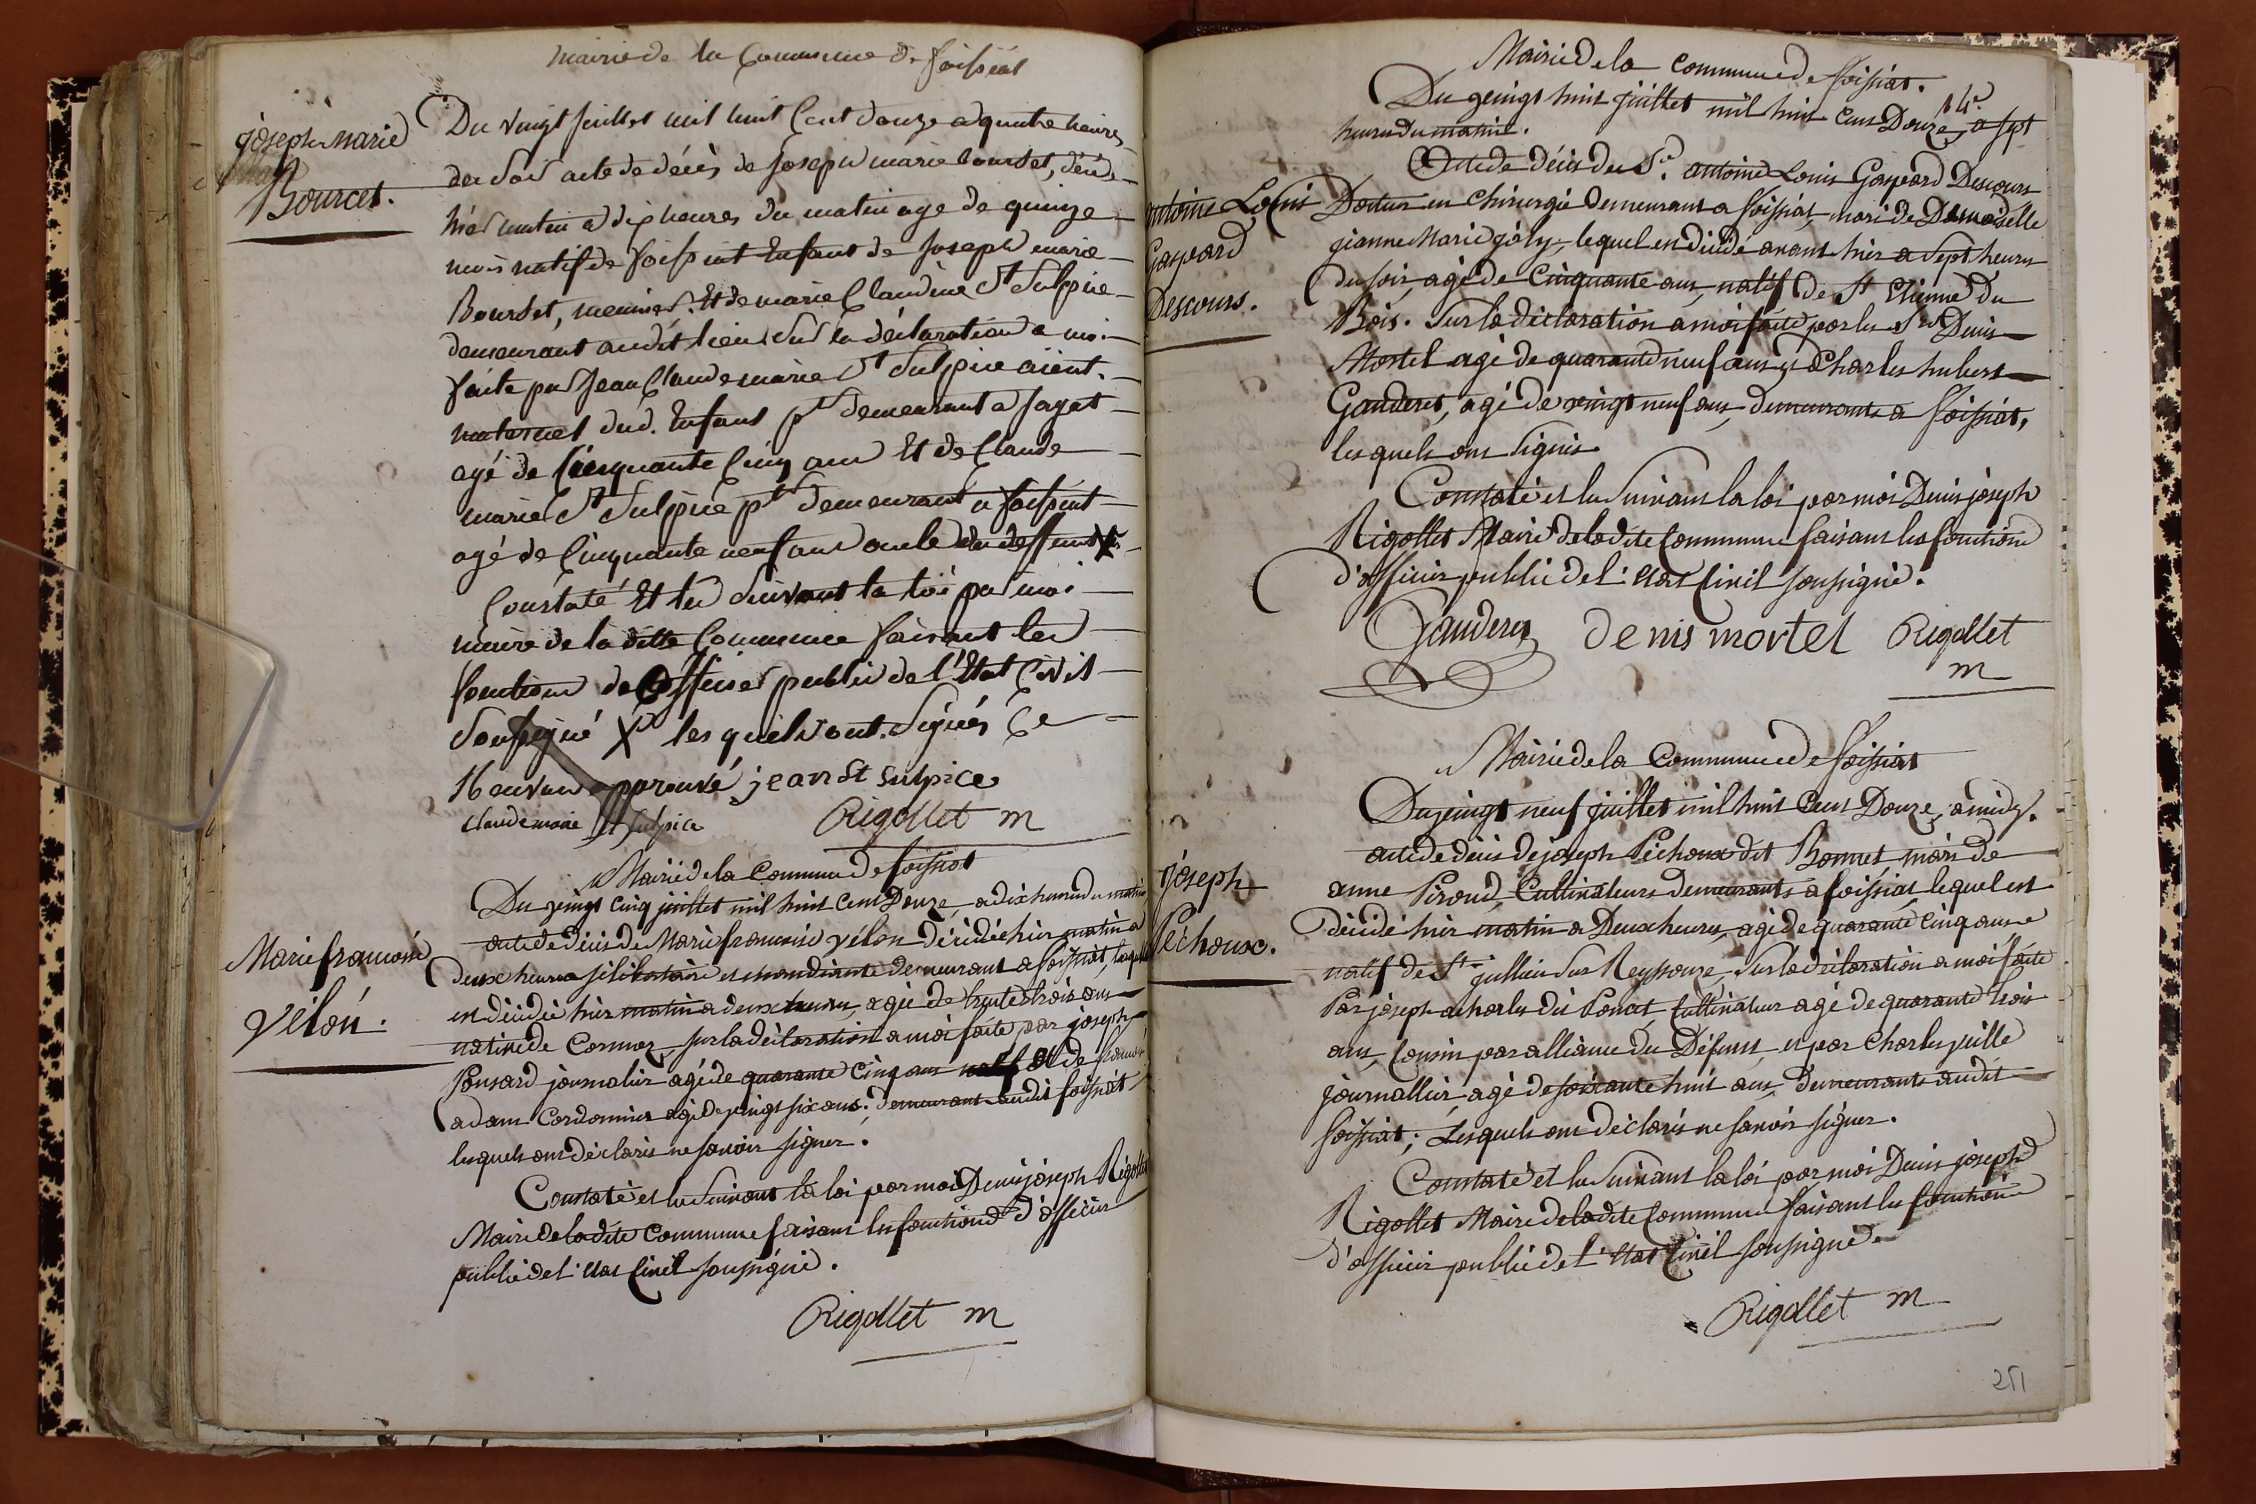 Mairie de la Commune de foissiat
joseph marie
Bourcet.
Du vingt juillet mil huit Cent douze a quatre heures
du soir acte de décès de joseph marie bourcet, décédé
hier matin a dix heures du matin agé de quinze
mois natif de foissiat Enfant de joseph marie
Bourcet, meunier. Et de marie Claudine St Sulpice
demeurant audit lieu sur la déclaration a moi
faite par jean Claude marie St Sulpice
maternel dud. Enfant pre demeurant a jayat
agé de Cinquante Cinq ans Et de Claude
marie St Sulpice pre demeurant a foissiat
agé de Cinquante neuf ans oncle du deffunt X
Constaté Et lu suivant la loi par moi
maire de la ditte Commune faisant les
fonctions de officier public de l'Etat Civil
Soussigné X les quels ont signés Ce
Renvoi approuvé jean St Sulpice
claude marie St Sulpice Rigollet m
Mairie de la Commune de foissiat
Marie francoise
Vélon.
Du vingt cinq juillet mil huit Cent Douze, a dix heures du matin
acte de décis de Marie francoise vélon décédée hier matin a
deux heures silibataire et mendiante demeurant a foissiat, laquelle
est décédée hier matin a deux heures, agée de trente trois ans
native de Cormoz, sur la déclaration a moi faite par joseph
Ponsard journalier agé de quarante cinq ans et de francois
adam Cordonnier agé de vingt six ans. demeurant audit foissiat
lesquels ont déclarés ne savoir signer.
Constaté et lu suivant la loi par moi Denis joseph Rigollet
Maire de ladite Commune faisant les fonctions d'officier
public de l'état Civil soussigné.
Rigollet m
Mairie de la Commune de foissiat.
Du vingt huit juillet mil huit Cent Douze, a sept
heures du matin.
antoine Louis
Gaspard
Descours.
Acte de décis du Sr. antoine Louis Gaspard Descours
Docteur en Chirurgie demeurant a foissiat, mari de Demoiselle
jeanne Marie joly, lequel est décédé avant hier a sept heures
du soir, agé de Cinquante ans, natif de St Etienne du
Bois. Sur la déclaration a moi faite par les Srs Denis
Mortel agé de quarante neuf ans, et Charles hubert
Gauderet, agé de vingt neuf ans, demeurants a foissiat,
lesquels ont signés.
Constaté et lu suivant la loi par moi Denis joseph
Rigollet Maire de ladite Commune faisant les fonctions
d'officier public de l'état Civil soussigné.
Gauderet denis mortel Rigollet
m
Mairie de la Commune de foissiat
joseph
Péchoux.
Du vingt neuf juillet mil huit Cent Douze, a midy.
acte de décis de joseph Péchoux dit Bonnet, mari de
anne Piroud, Cultivateurs demeurants a foissiat, lequel est
décédé hier matin a Deux heures, agé de quarante cinq ans
natif de St jullien sur Reyssouze, sur la déclaration a moi faite
Par joseph dit Poncet, Cultivateur agé de quarante trois
ans, Cousin par alliance du Défunt, et par Charles
journallier, agé de soixante huit ans, Demeurants audit
foissiat; Lesquels ont déclarés ne savoir signer.
Constaté et lu suivant la loi par moi Denis joseph
Rigollet Maire de ladite Commune faisant les fonctions
d'officier public de l'état Civil soussigné.
Rigollet m
251